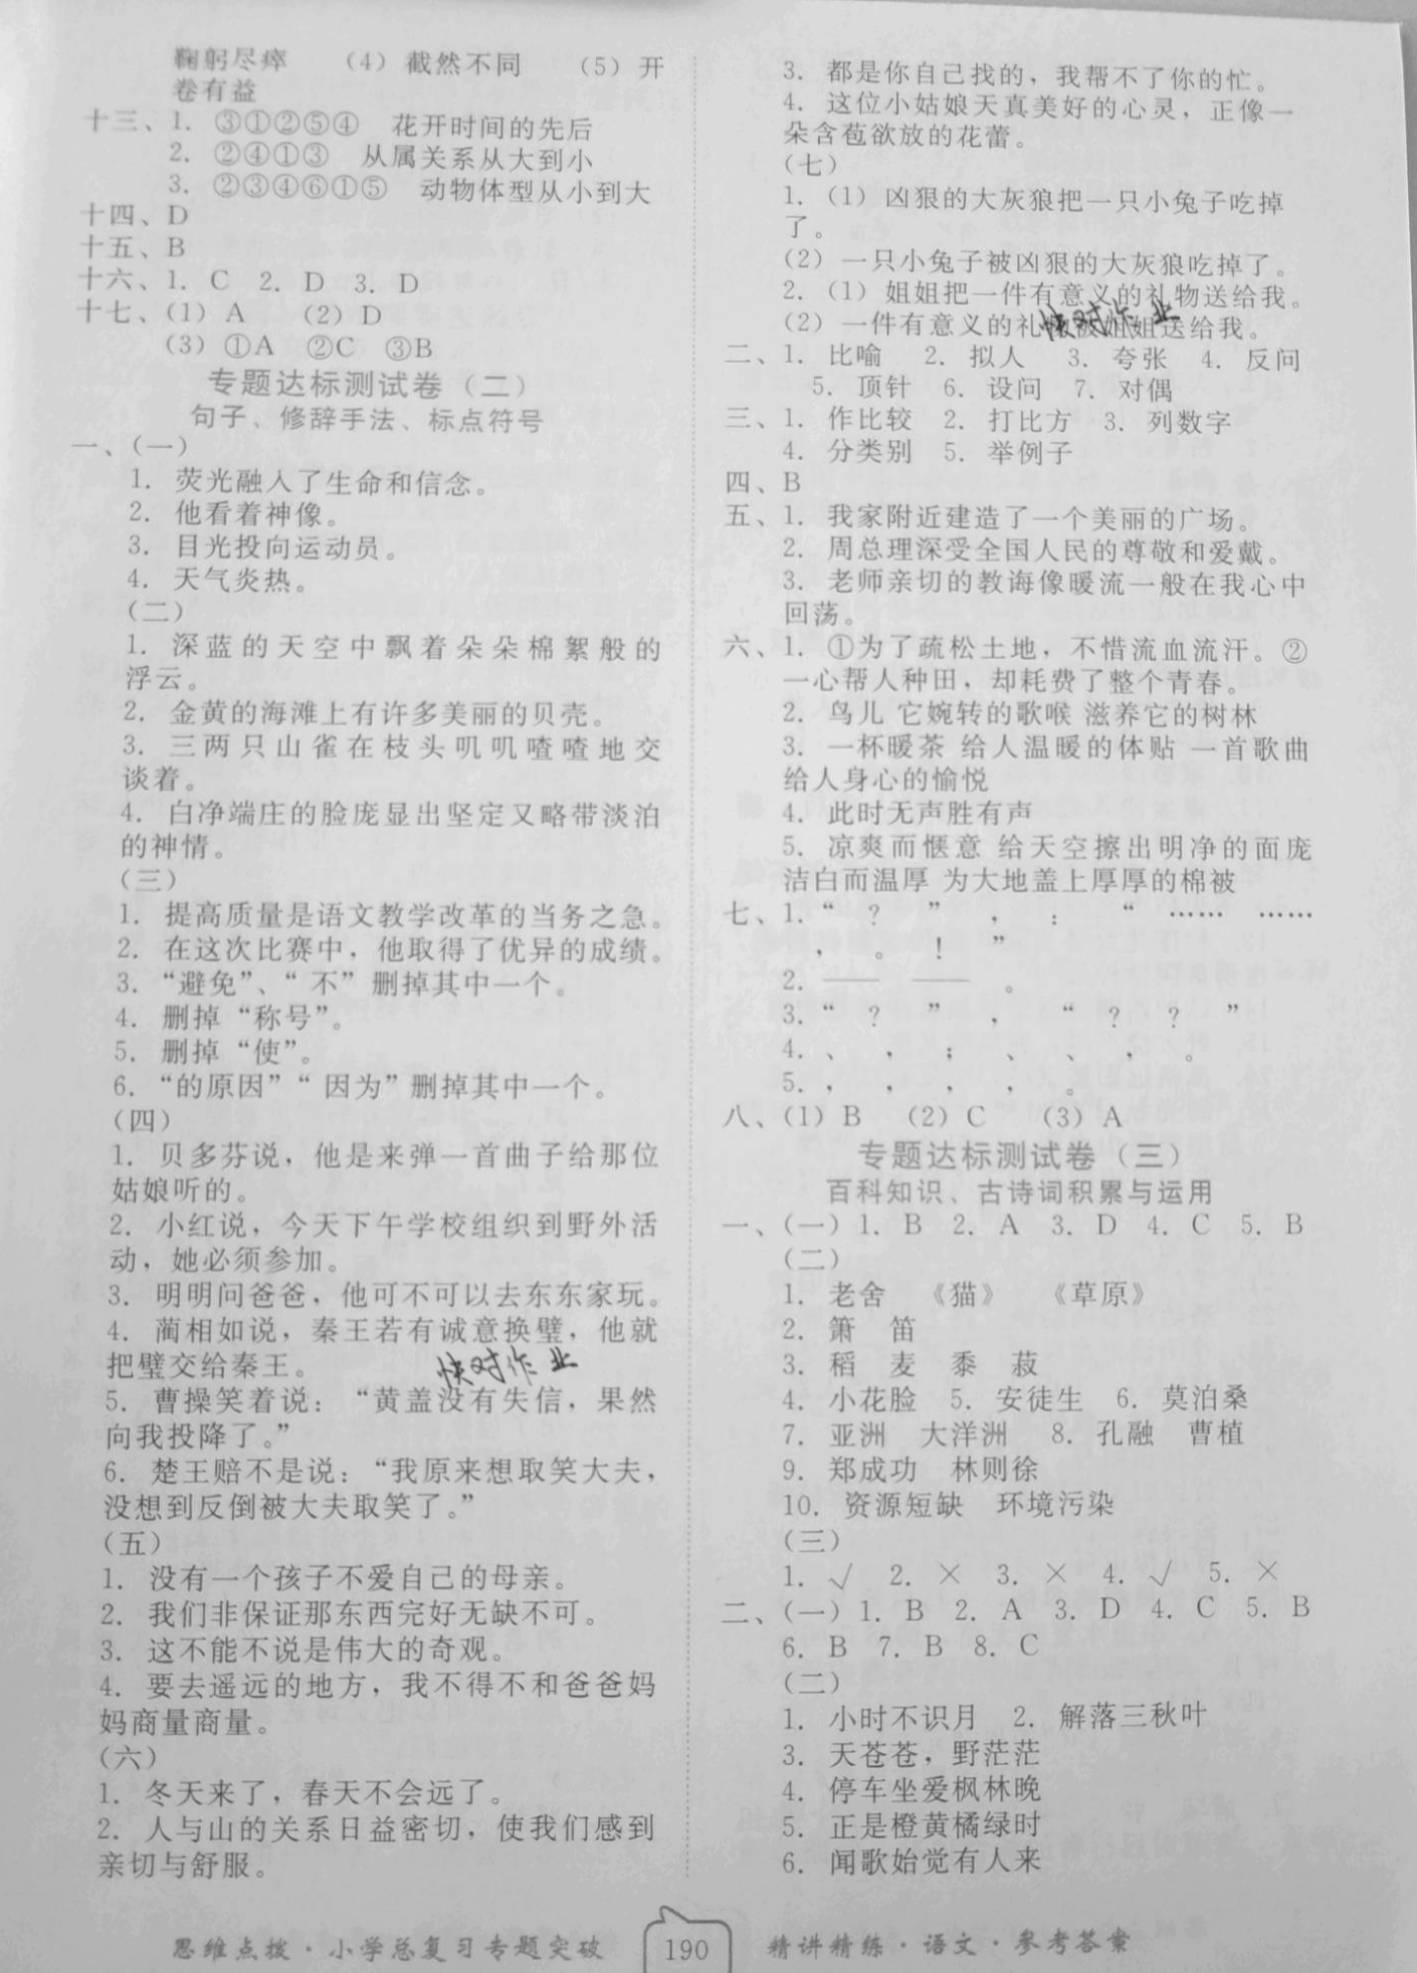 鞠躬尽瘁 （4）截然不同 （5）开
卷有益
十三、1. ③①②⑤④ 花开时间的先后
2. ②④①③ 从属关系从大到小
3. ②③④⑥①⑤ 动物体型从小到大
十四、D
十五、B
十六、1. C 2. D 3. D
十七、（1）A （2）D
（3）①A ②C ③B
专题达标测试卷（二）
句子、修辞手法、标点符号
一、（一）
1. 荧光融入了生命和信念。
2. 他看着神像。
3. 目光投向运动员。
4. 天气炎热。
（二）
1. 深蓝的天空中飘着朵朵棉絮般的
浮云。
2. 金黄的海滩上有许多美丽的贝壳。
3. 三两只山雀在枝头叽叽喳喳地交
谈着。
4. 白净端庄的脸庞显出坚定又略带淡泊
的神情。
（三）
1. 提高质量是语文教学改革的当务之急。
2. 在这次比赛中，他取得了优异的成绩。
3. “避免”、“不”删掉其中一个。
4. 删掉“称号”。
5. 删掉“使”。
6. “的原因”“因为”删掉其中一个。
（四）
1. 贝多芬说，他是来弹一首曲子给那位
姑娘听的。
2. 小红说，今天下午学校组织到野外活
动，她必须参加。
3. 明明问爸爸，他可不可以去东东家玩。
4. 蔺相如说，秦王若有诚意换璧，他就
把璧交给秦王。
快对作业
5. 曹操笑着说：“黄盖没有失信，果然
向我投降了。”
6. 楚王赔不是说：“我原来想取笑大夫，
没想到反倒被大夫取笑了。”
（五）
1. 没有一个孩子不爱自己的母亲。
2. 我们非保证那东西完好无缺不可。
3. 这不能不说是伟大的奇观。
4. 要去遥远的地方，我不得不和爸爸妈
妈商量商量。
（六）
1. 冬天来了，春天不会远了。
2. 人与山的关系日益密切，使我们感到
亲切与舒服。
3. 都是你自己找的，我帮不了你的忙。
4. 这位小姑娘天真美好的心灵，正像一
朵含苞欲放的花蕾。
（七）
1.（1）凶狠的大灰狼把一只小兔子吃掉
了。
（2）一只小兔子被凶狠的大灰狼吃掉了。
2.（1）姐姐把一件有意义的礼物送给我。
（2）一件有意义的礼物被姐姐送给我。
快对作业
二、1. 比喻 2. 拟人 3. 夸张 4. 反问
5. 顶针 6. 设问 7. 对偶
三、1. 作比较 2. 打比方 3. 列数字
4. 分类别 5. 举例子
四、B
五、1. 我家附近建造了一个美丽的广场。
2. 周总理深受全国人民的尊敬和爱戴。
3. 老师亲切的教诲像暖流一般在我心中
回荡。
六、1. ①为了疏松土地，不惜流血流汗。②
一心帮人种田，却耗费了整个青春。
2. 鸟儿 它婉转的歌喉 滋养它的树林
3. 一杯暖茶 给人温暖的体贴 一首歌曲
给人身心的愉悦
4. 此时无声胜有声
5. 凉爽而惬意 给天空擦出明净的面庞
洁白而温厚 为大地盖上厚厚的棉被
七、1. “ ？ ” ， ： “ …… ……
， 。 ！ ”
2. —— —— 。
3. “ ？ ” ， “ ？ ？ ”
4. 、 ， ； 、 、 ， 。
5. ， ， ， ， 。
八、（1）B （2）C （3）A
专题达标测试卷（三）
百科知识、古诗词积累与运用
一、（一）1. B 2. A 3. D 4. C 5. B
（二）
1. 老舍 《猫》 《草原》
2. 箫 笛
3. 稻 麦 黍 菽
4. 小花脸 5. 安徒生 6. 莫泊桑
7. 亚洲 大洋洲 8. 孔融 曹植
9. 郑成功 林则徐
10. 资源短缺 环境污染
（三）
1. √ 2. × 3. × 4. √ 5. ×
二、（一）1. B 2. A 3. D 4. C 5. B
6. B 7. B 8. C
（二）
1. 小时不识月 2. 解落三秋叶
3. 天苍苍，野茫茫
4. 停车坐爱枫林晚
5. 正是橙黄橘绿时
6. 闻歌始觉有人来
思维点拨·小学总复习专题突破 190 精讲精练·语文·参考答案